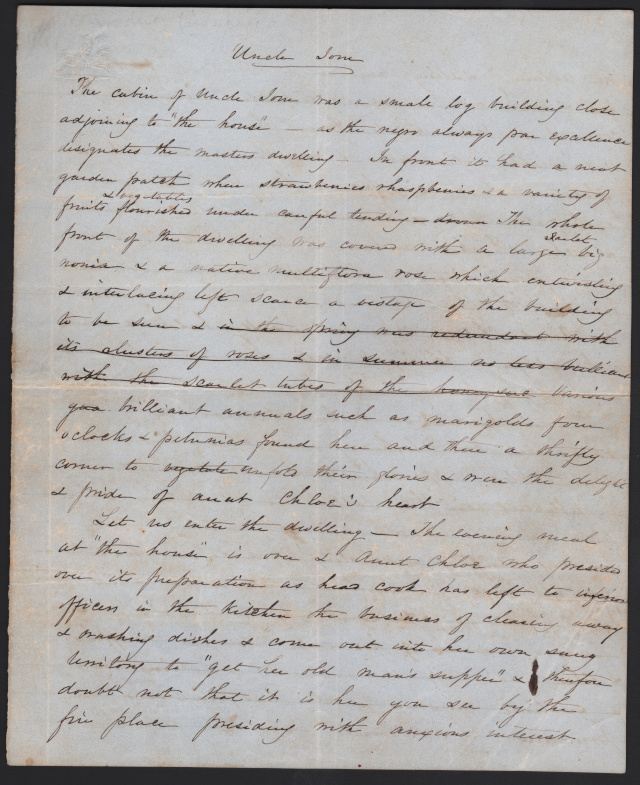 Uncle Tom
The cabin of Uncle Tom was a small log building close
adjoining to "the house" — as the negro always par excellence
designates the masters dwelling — In front it had a neat
garden patch where strawberries rhaspberries & a variety of
& vegetables
fruits flourished under careful tending — down The whole
scarlet
front of the dwelling was covered with a large big
nonia & a native multiflora rose which entwisting
& interlacing left scarce a vestage of the building
to be seen & in the spring was redundant with
its clusters of roses & in summer no less brilliant
with the scarlet tubes of the honeysuc Various
brilliant annuals such as marigolds four
oclocks & petunias found here and there a thrifty
corner to vegetate unfold their glories & were the delight
& pride of aunt Chloe's heart
Let us enter the dwelling — The evening meal
at "the house" is over & Aunt Chloe who presided
over its preparation as head cook has left to inferior
officers in the kitchen the business of clearing away
& washing dishes & come out into her own snug
territory to "get her old man's supper" & therefore
doubt not that it is her you see by the
fire place presiding with anxious interest